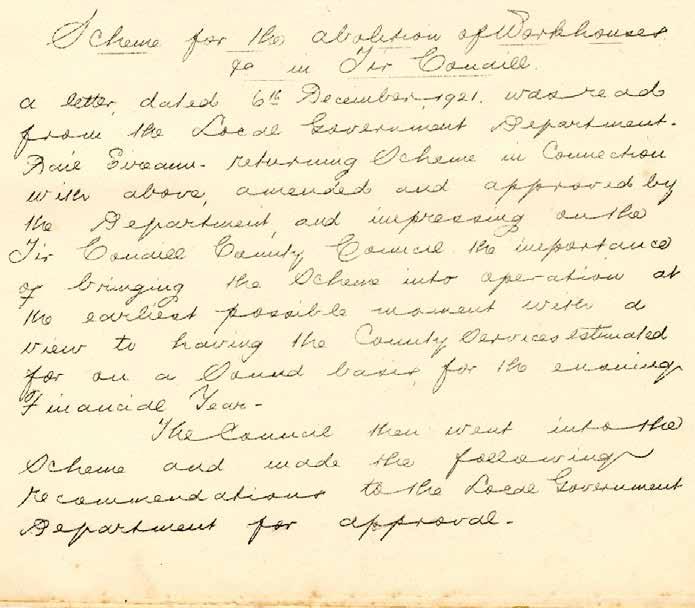 Scheme for the abolition of Workhouses
&c in Tir Conaill.
a letter, dated 6th December 1921. was read
from the Local Government Department.
Dail Eireann. returning Scheme in Connection
with above, amended and approved by
the Department, and impressing on the
Tir Conaill County Council the importance
of bringing the Scheme into operation at
the earliest possible moment with a
view to having the County Services estimated
for on a Sound basis for the ensuing
Financial Year.
The Council then went into the
Scheme and made the following
recommendations to the Local Government
Department for approval.